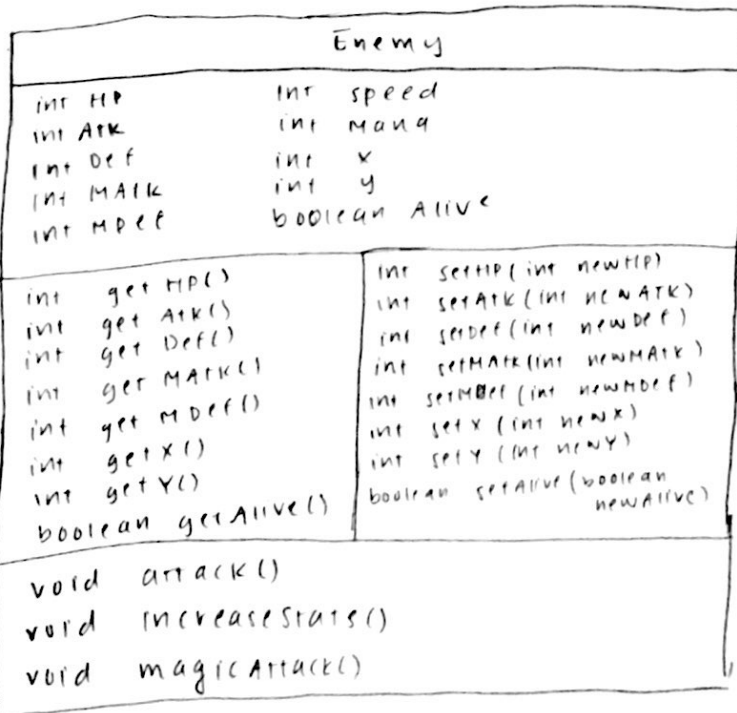 Enemy
int HP
int Atk
int Def
int MAtk
int MDef
int speed
int Mana
int x
int y
boolean Alive
int get HP()
int get Atk()
int get Def()
int get MAtk()
int get MDef()
int getX()
int getY()
boolean getAlive()
int setHP(int newHP)
int setAtk(int newATK)
int setDef(int newDef)
int setMAtk(int newMAtk)
int setMDef(int newMDef)
int setX (int newX)
int setY (int newY)
boolean setAlive(boolean
newAlive)
void attack()
void increaseStats()
void magicAttack()